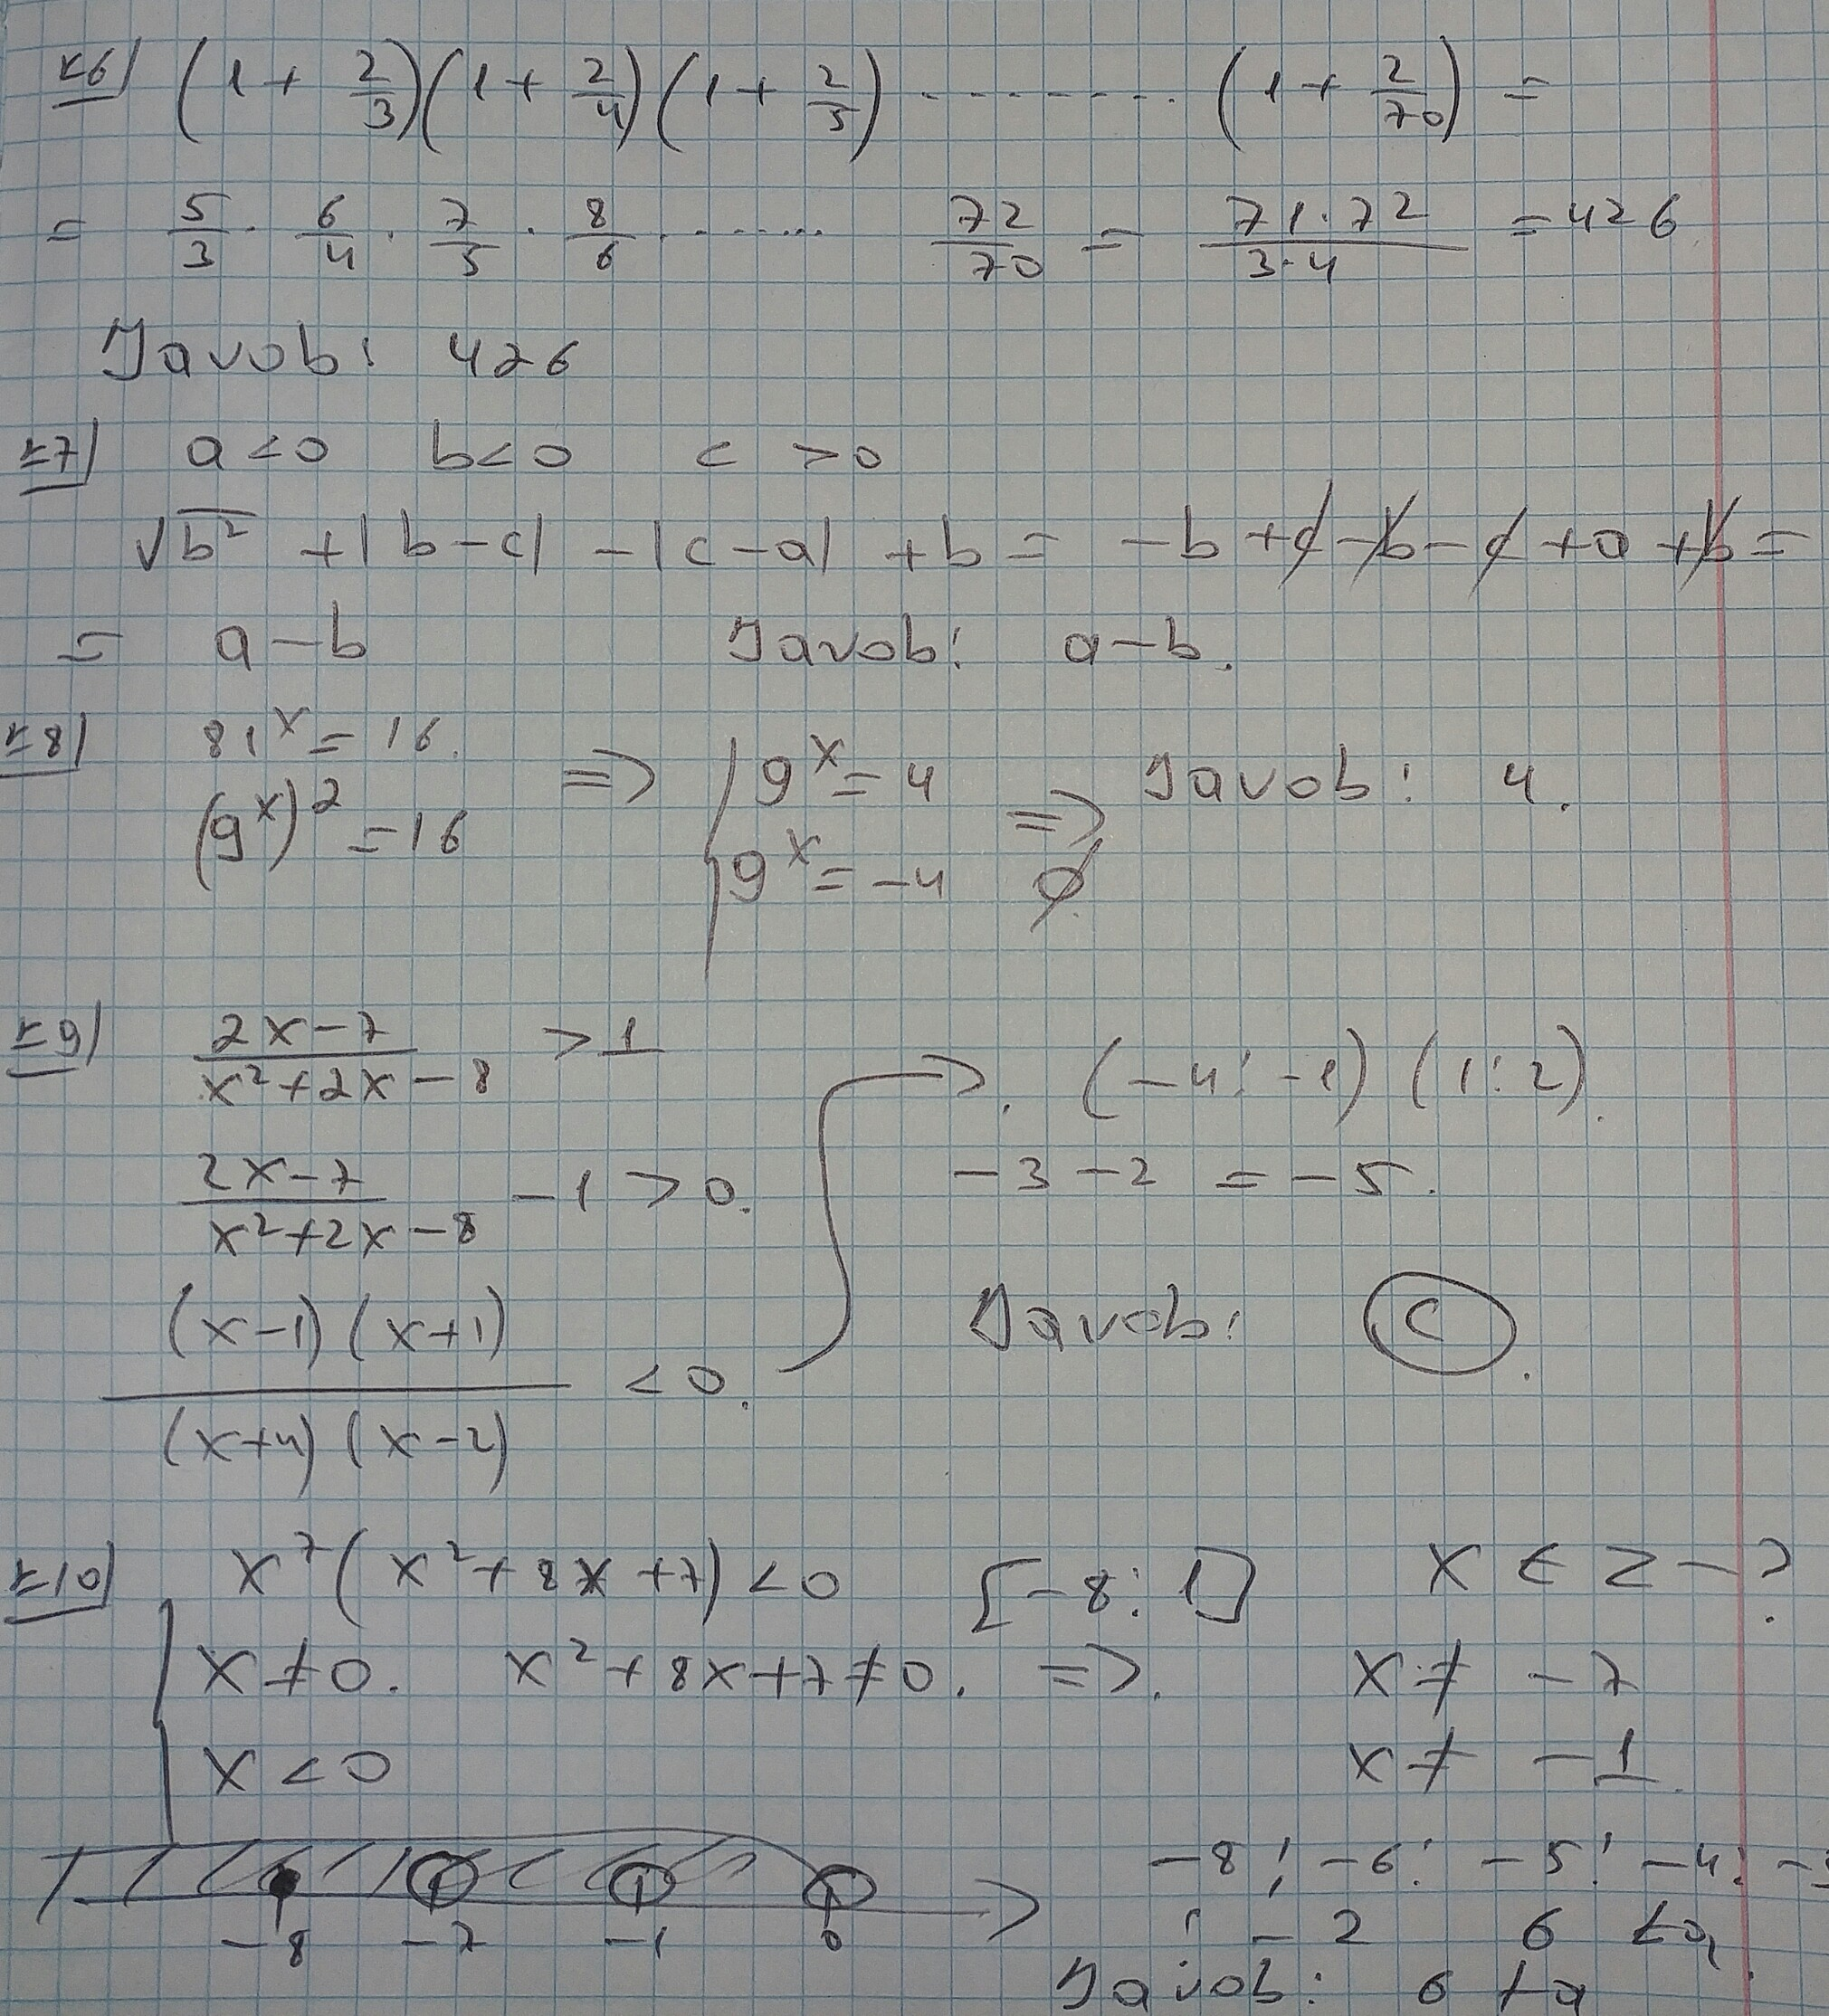 №6) (1 + 2/3)(1 + 2/4)(1 + 2/5) ........ (1 + 2/70) =
= 5/3 · 6/4 · 7/5 · 8/6 ....... 72/70 = 71·72/3·4 = 426
Javob: 426
№7) a<0 b<0 c >0
√b² + |b-c| - |c-a| + b = -b + c - b - c + a + b =
= a-b Javob: a-b.
№8) 81^x = 16.
(9^x)^2 = 16 => 9^x = 4 => Javob: 4.
9^x = -4 ∅
№9) 2x-7/x²+2x-8 > 1
(-4; -1) (1; 2).
2x-7/x²+2x-8 - 1 > 0.
-3 - 2 = -5.
(x-1)(x+1)/(x+4)(x-2) < 0.
Javob: C.
№10) x^7(x²+8x+7) < 0 [-8; 1] x ∈ Z - ?
x ≠ 0. x²+8x+7 ≠ 0. => x ≠ -7
x < 0 x ≠ -1
-8 -7 -1 0
-8; -6; -5; -4;
; -2 6 ta
Javob: 6 ta